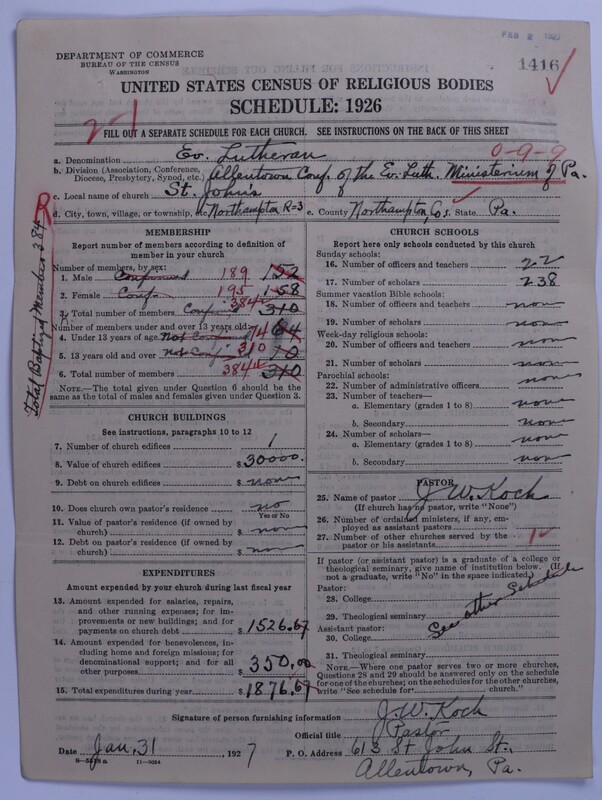 FEB 2 1927
DEPARTMENT OF COMMERCE
BUREAU OF THE CENSUS
WASHINGTON
1416
UNITED STATES CENSUS OF RELIGIOUS BODIES
SCHEDULE: 1926
2-1
FILL OUT A SEPARATE SCHEDULE FOR EACH CHURCH. SEE INSTRUCTIONS ON THE BACK OF THIS SHEET
0-9-9
a. Denomination Ev. Lutheran
b. Division (Association, Conference, Diocese, Presbytery, Synod, etc.) Allentown Conf. of the Ev. Luth. Ministerium of Pa.
c. Local name of church St. John's
d. City, town, village, or township, etc. Northampton R=3 e. County Northampton Co. State Pa.
Total Baptized Members 384
MEMBERSHIP
Report number of members according to definition of member in your church
Number of members, by sex:
1. Male Confirmed 189 152
2. Female Conf. 195 158
3. Total number of members Confirmed 384 310
Number of members under and over 13 years old:
4. Under 13 years of age Not Conf 74 64
5. 13 years old and over Not Conf 310 10
6. Total number of members 384 310
NOTE.—The total given under Question 6 should be the same as the total of males and females given under Question 3.
CHURCH BUILDINGS
See instructions, paragraphs 10 to 12
7. Number of church edifices 1
8. Value of church edifices $ 30000.
9. Debt on church edifices $ none
10. Does church own pastor's residence no
Yes or No
11. Value of pastor's residence (if owned by church) $ none
12. Debt on pastor's residence (if owned by church) $ none
EXPENDITURES
Amount expended by your church during last fiscal year
13. Amount expended for salaries, repairs, and other running expenses; for improvements or new buildings; and for payments on church debt $ 1526.67
14. Amount expended for benevolences, including home and foreign missions; for denominational support; and for all other purposes $ 350.00
15. Total expenditures during year $ 1876.67
CHURCH SCHOOLS
Report here only schools conducted by this church
Sunday schools:
16. Number of officers and teachers 22
17. Number of scholars 238
Summer vacation Bible schools:
18. Number of officers and teachers none
19. Number of scholars none
Week-day religious schools:
20. Number of officers and teachers none
21. Number of scholars none
Parochial schools:
22. Number of administrative officers none
23. Number of teachers—
a. Elementary (grades 1 to 8) none
b. Secondary none
24. Number of scholars—
a. Elementary (grades 1 to 8) none
b. Secondary none
PASTOR
25. Name of pastor J. W. Koch
(If church has no pastor, write "None")
26. Number of ordained ministers, if any, employed as assistant pastors
27. Number of other churches served by the pastor or his assistants 1
If pastor (or assistant pastor) is a graduate of a college or theological seminary, give name of institution below. (If not a graduate, write "No" in the space indicated.)
Pastor:
28. College
29. Theological seminary
See other Schedule
Assistant pastor:
30. College
31. Theological seminary
NOTE.—Where one pastor serves two or more churches, Questions 28 and 29 should be answered only on the schedule for one of the churches; on the schedules for the other churches, write "See schedule for church."
Signature of person furnishing information J. W. Koch
Official title Pastor
Date Jan. 31 1927
P. O. Address 613 St John St.,
Allentown, Pa.
11—9034